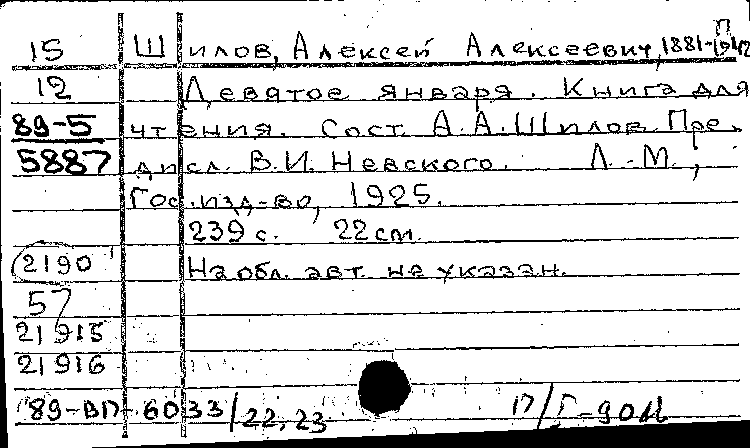 П
15 Шилов, Алексей Алексеевич, 1881-1942
12 Девятое января. Книга для
89-5 чтения. Сост. А.А.Шилов. Пре-
5887 дисл. В.И. Невского. Л.-М.,
Гос. изд-во, 1925.
239 с. 22 см.
2190 На обл. авт. не указан.
57
21915
21916
89-ВП-6033/22.23